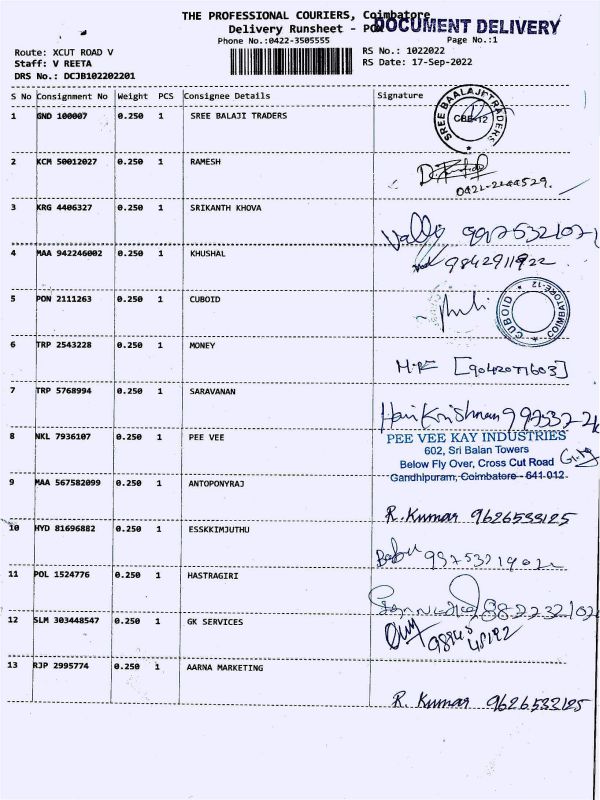 THE PROFESSIONAL COURIERS, Coimbatore
Delivery Runsheet - POD
DOCUMENT DELIVERY
Phone No.:0422-3505555
Page No.:1
Route: XCUT ROAD V
RS No.: 1022022
Staff: V REETA
RS Date: 17-Sep-2022
DRS No.: DCJB102202201
S No Consignment No Weight PCS Consignee Details Signature
1 GND 100007 0.250 1 SREE BALAJI TRADERS
SREE BAALAJI TRADERS
CBE-12
2 KCM 50012027 0.250 1 RAMESH
3 KRG 4406327 0.250 1 SRIKANTH KHOVA
Vally
4 MAA 942246002 0.250 1 KHUSHAL
9842911922
5 PON 2111263 0.250 1 CUBOID
CUBOID
COIMBATORE-12
6 TRP 2543228 0.250 1 MONEY
7 TRP 5768994 0.250 1 SARAVANAN
Hari Krishnan
8 NKL 7936107 0.250 1 PEE VEE
PEE VEE KAY INDUSTRIES
602, Sri Balan Towers
Below Fly Over, Cross Cut Road
Gandhipuram, Coimbatore - 641 012.
9 MAA 567582099 0.250 1 ANTOPONYRAJ
R. Kumar 9626533125
10 HYD 81696882 0.250 1 ESSKKIMJUTHU
Babu
11 POL 1524776 0.250 1 HASTRAGIRI
12 SLM 303448547 0.250 1 GK SERVICES
13 RJP 2995774 0.250 1 AARNA MARKETING
R. Kumar 9626532125